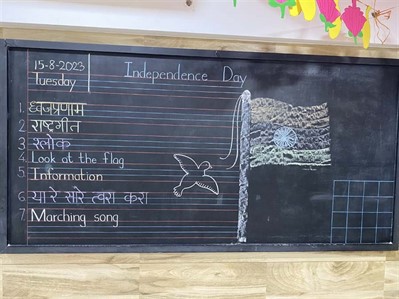 15-8-2023
Tuesday
Independence Day
1. ध्वजप्रणाम
2. राष्ट्रगीत
3. श्लोक
4. Look at the flag
5. Information
6. या रे सारे त्वरा करा
7. Marching song